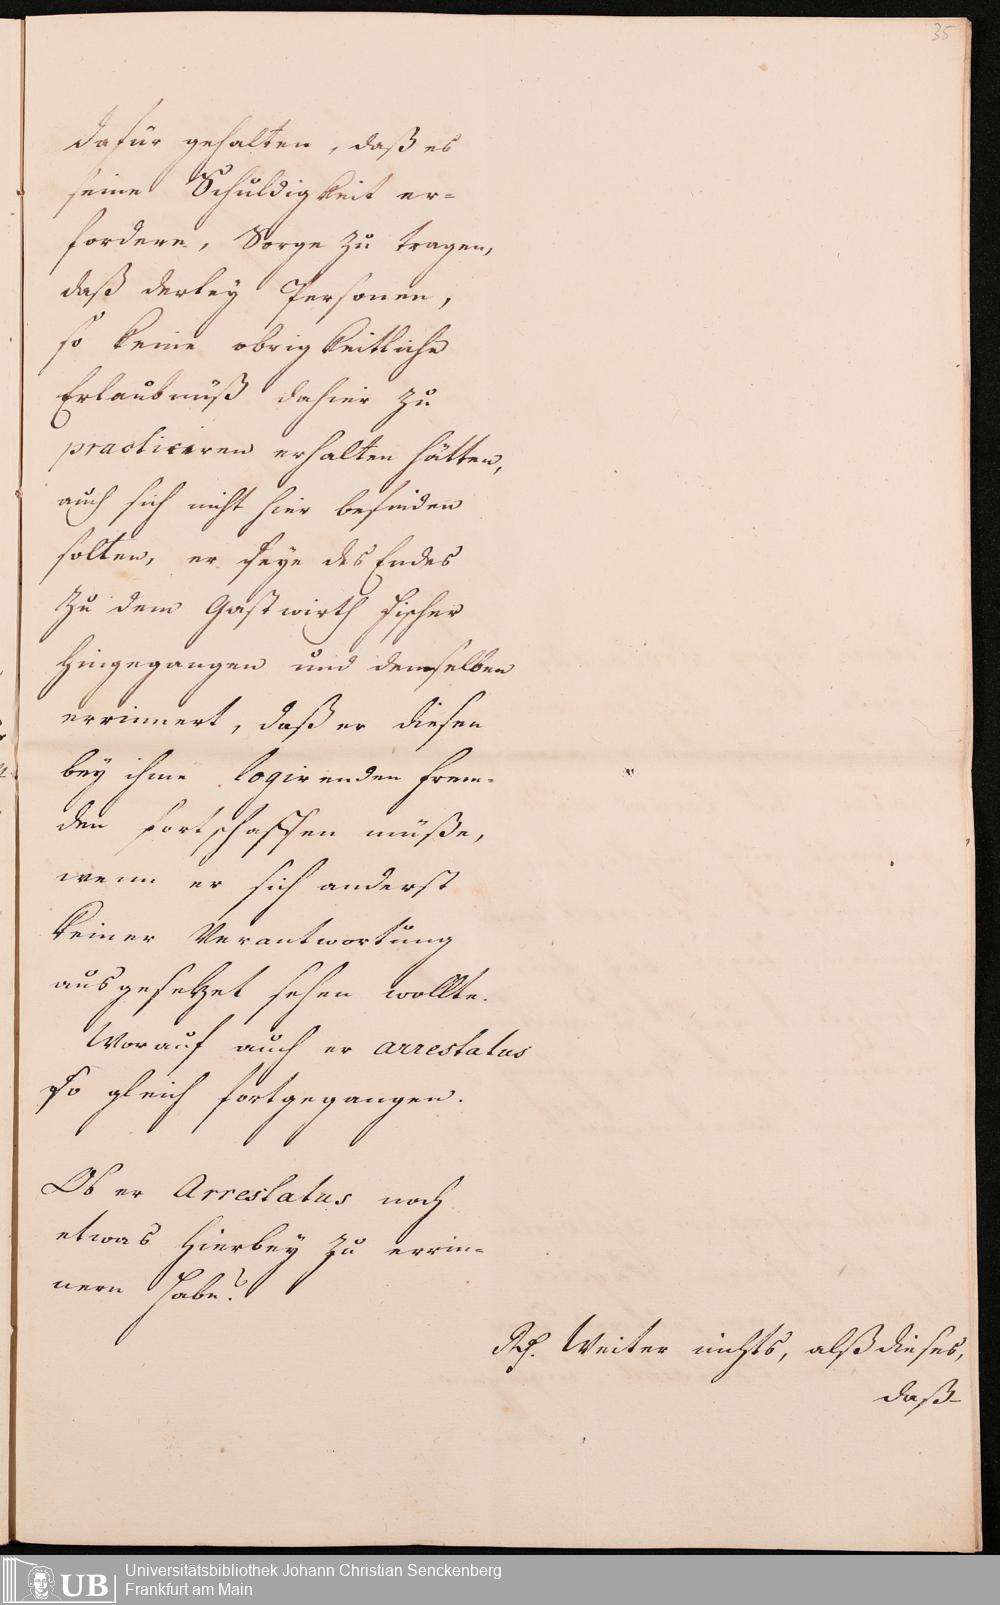 35
dafür gehalten, daß es
seine Schuldigkeit er=
fordere, Sorge zu tragen,
daß derley Personen,
so keine obrigkeitliche
Erlaubnüß dahier zu
practiciren erhalten hätten,
auch sich nicht hier befinden
solten, er seye des Endes
zu dem Gastwirth Fischer
hingegangen und demselben
errinnert, daß er diesen
bey ihme logirenden Frem=
den fortschaffen müße,
wenn er sich anderst
keiner Verantwortung
ausgesetzet sehen wollte.
Worauf auch er arrestatus
so gleich fortgegangen.
Ob er Arrestatus noch
etwas hierbey zu errin=
nern habe?
Rp. Weiter nichts, alß dieses,
daß
UB
Universitätsbibliothek Johann Christian Senckenberg
Frankfurt am Main